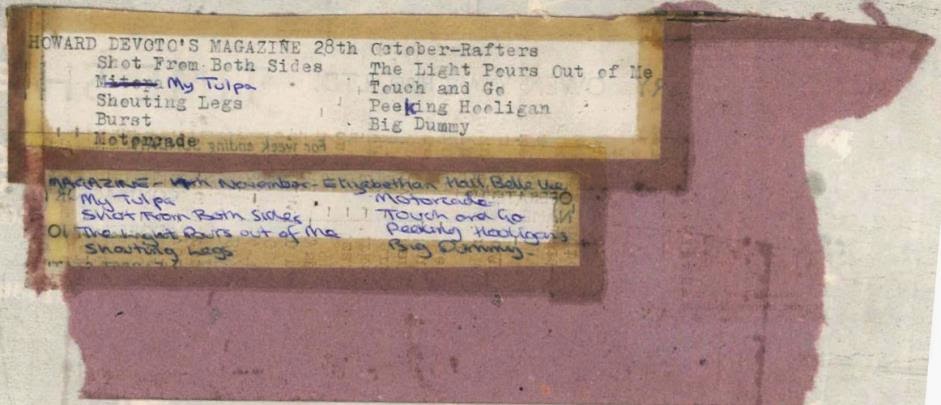 HOWARD DEVOTO'S MAGAZINE 28th October-Rafters
Shot From Both Sides The Light Pours Out of Me
My Tulpa Touch and Go
Shouting Legs Peeking Hooligan
Burst Big Dummy
Motorcade
For week ending
MAGAZINE - November - Elizabethan Hall, Belle Vue
My Tulpa Motorcade
Shot From Both Sides Touch and Go
The Light Pours out of Me Peeking Hooligans
Shouting Legs Big Dummy.